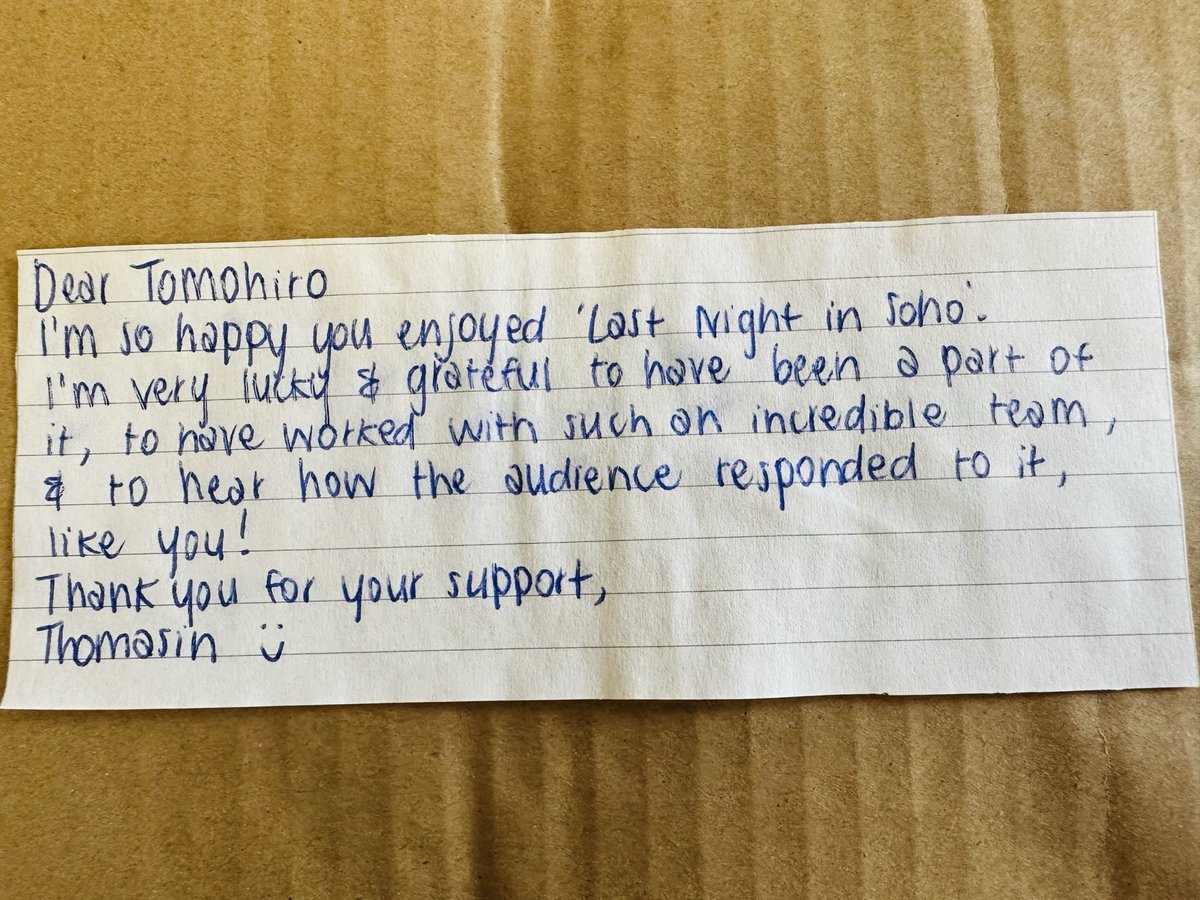 Dear Tomohiro
I'm so happy you enjoyed 'Last Night in Soho'.
I'm very lucky & grateful to have been a part of
it, to have worked with such an incredible team,
& to hear how the audience responded to it,
like you!
Thank you for your support,
Thomasin ü